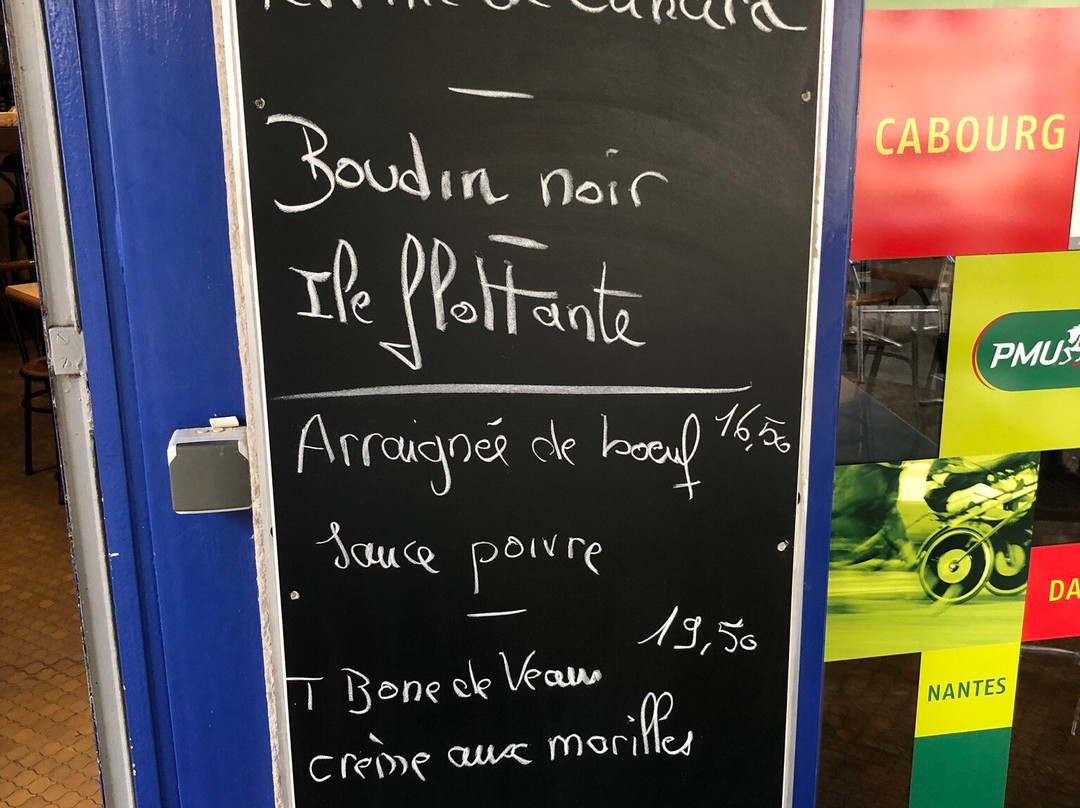 Terrine de Canard
Boudin noir
Ile flottante
Arraignée de boeuf 16,50
sauce poivre
19,50
T Bone de Veau
crème aux morilles
CABOURG
PMU
DA
NANTES